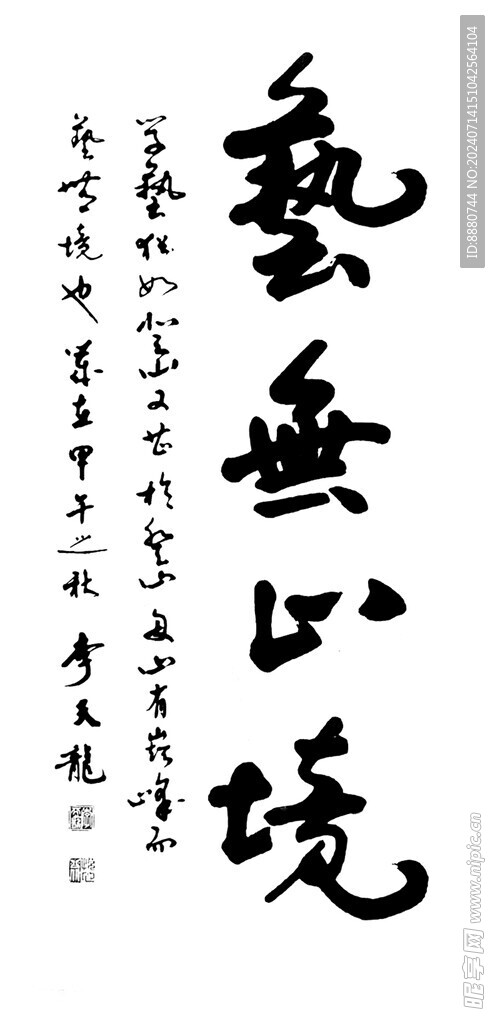 藝無止境
学藝猶如登山又於登山山有巔峰而
藝無境也 歲在甲午之秋 李天龍
ID:8880744 NO:20240714151042564104
昵享网 www.nipic.cn